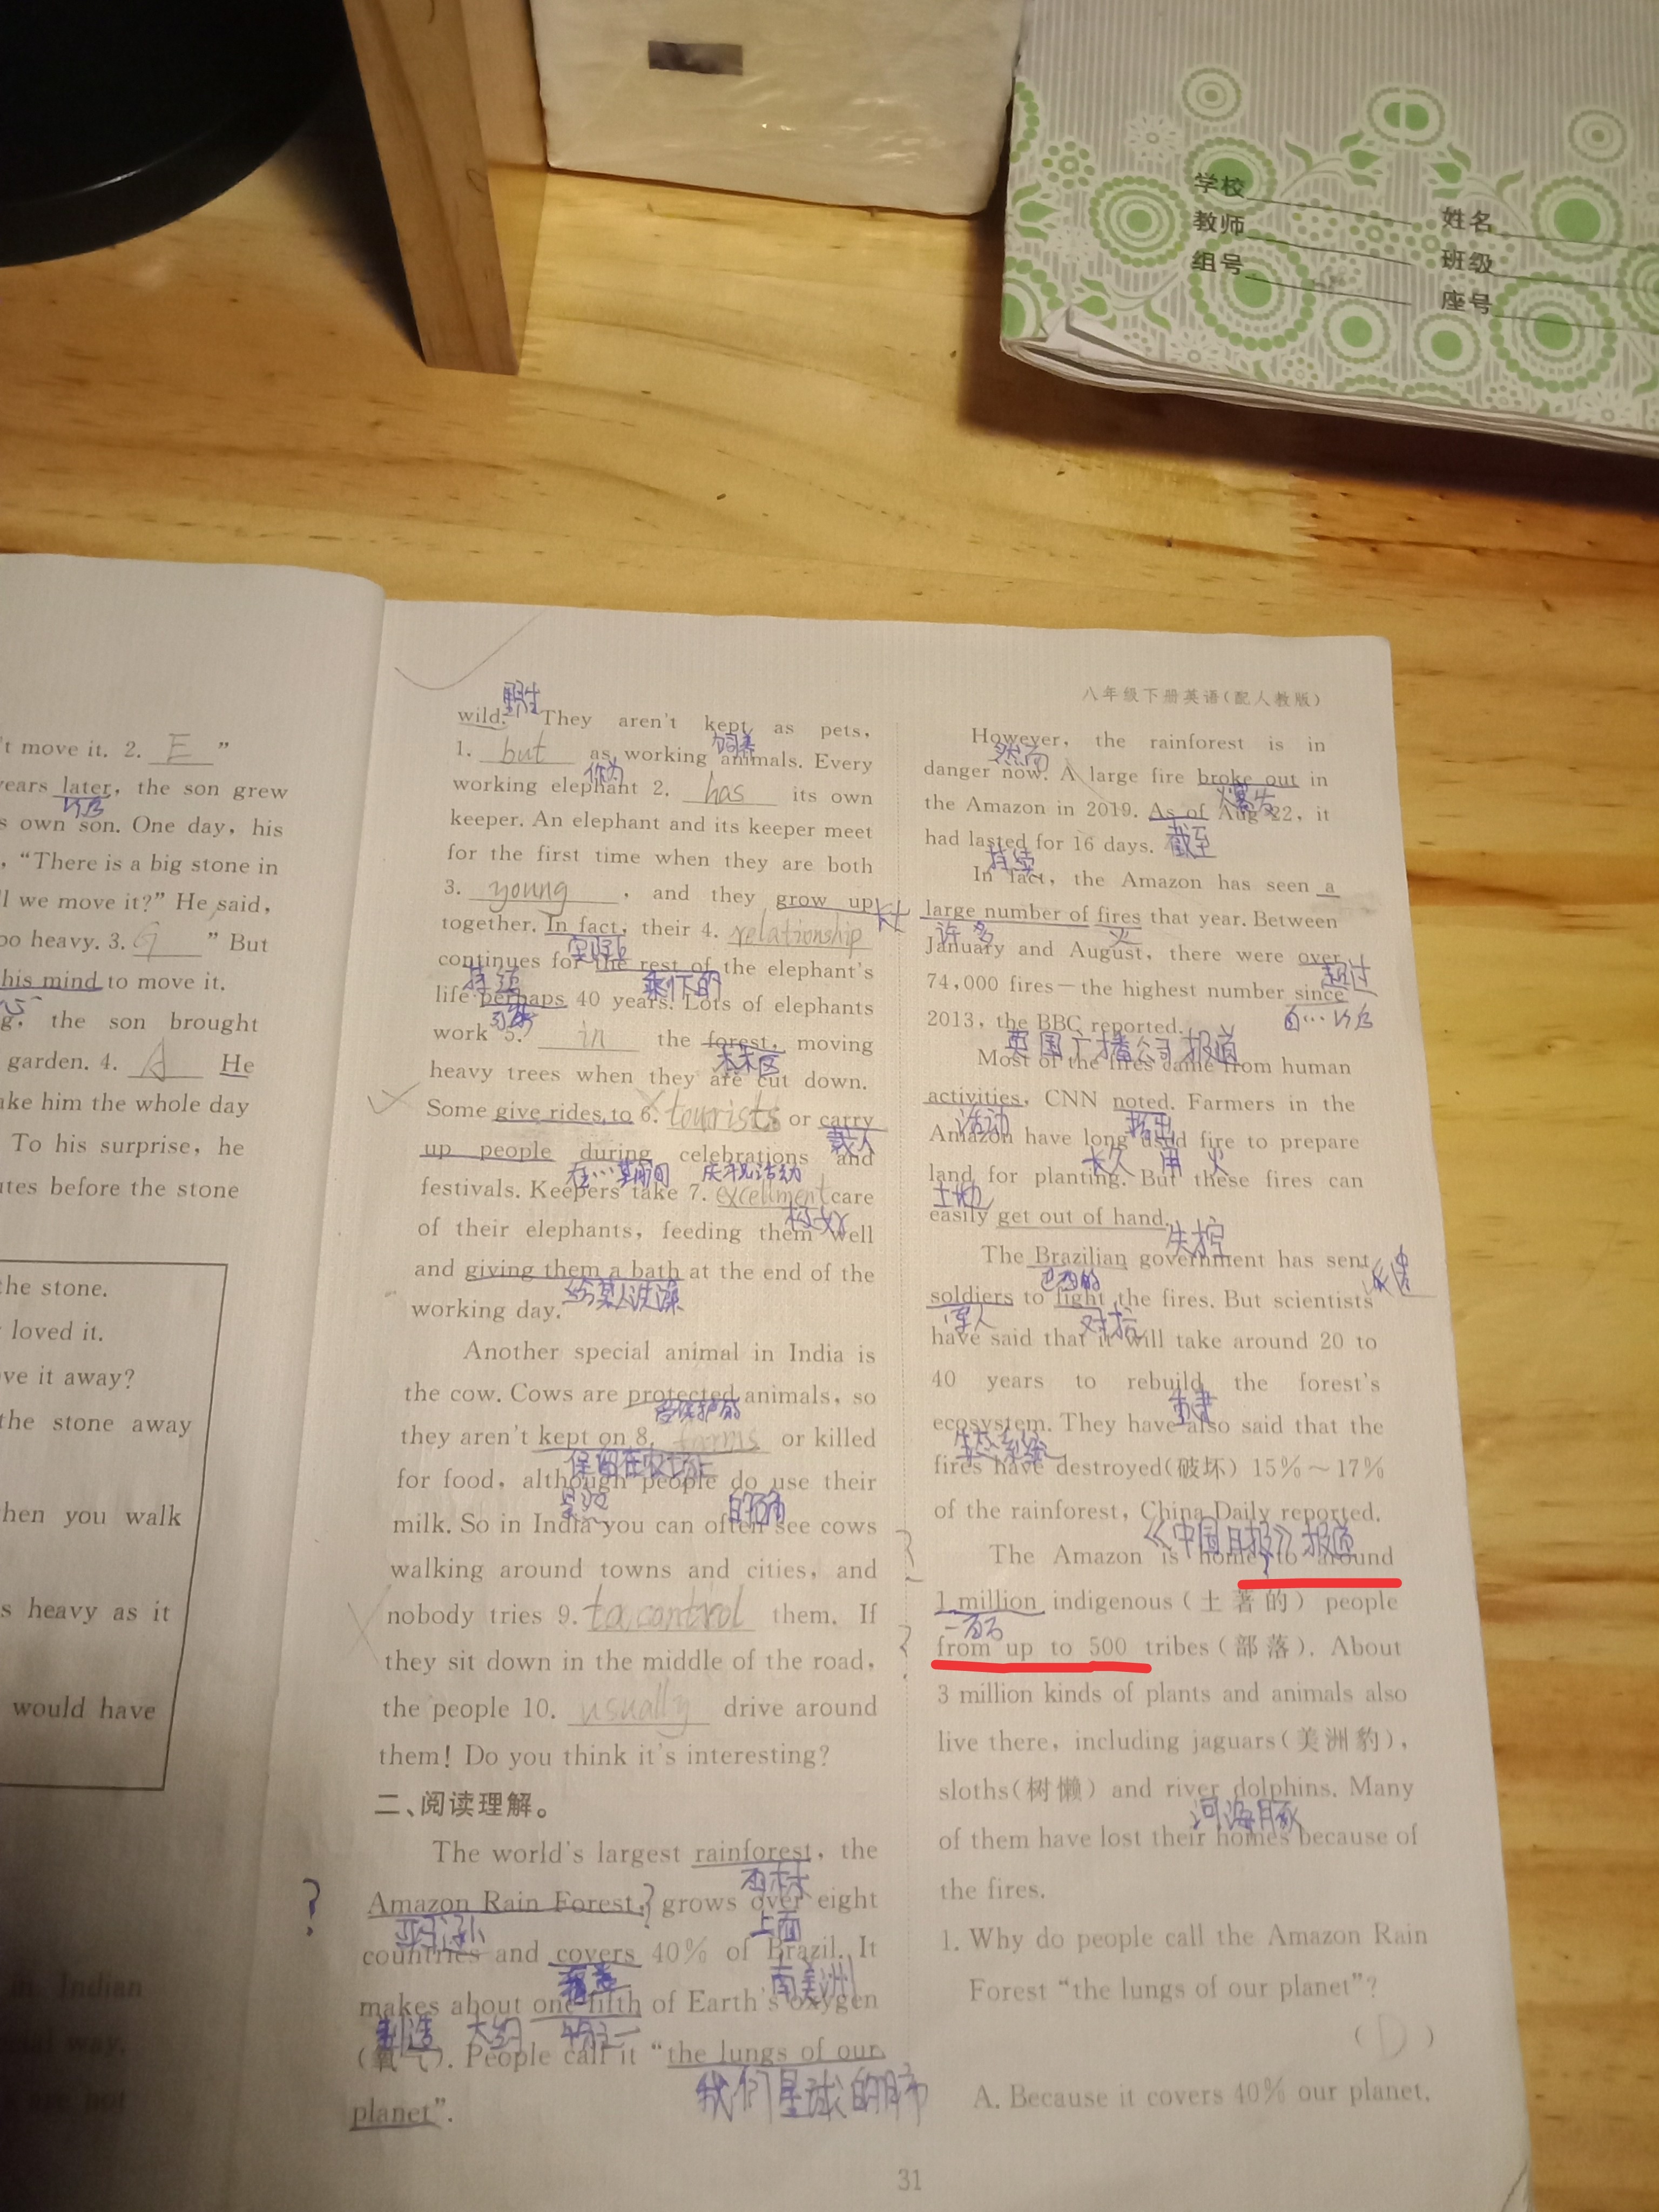 学校
教师
组号
姓名
班级
座号
't move it. 2. E ”
years later, the son grew
以后
s own son. One day, his
, “There is a big stone in
ll we move it?” He said,
oo heavy. 3. G ” But
his mind to move it.
g, the son brought
garden. 4. A He
ake him the whole day
To his surprise, he
utes before the stone
he stone.
loved it.
ve it away?
the stone away
hen you walk
s heavy as it
would have
in Indian
way.
are not
野生
wild. They aren't kept as pets,
饲养
1. but as working animals. Every
作为
working elephant 2. has its own
keeper. An elephant and its keeper meet
for the first time when they are both
3. young , and they grow up
together. In fact, their 4. relationship
continues for the rest of the elephant's
持续 剩下的
life perhaps 40 years. Lots of elephants
work 5. in the forest, moving
林区
heavy trees when they are cut down.
Some give rides to 6. tourists or carry
载人
up people during celebrations and
在…期间 庆祝活动
festivals. Keepers take 7. excellment care
极好
of their elephants, feeding them well
and giving them a bath at the end of the
给某人洗澡
working day.
Another special animal in India is
the cow. Cows are protected animals, so
受保护的
they aren't kept on 8. farms or killed
保留在农场
for food, although people do use their
虽然 的确
milk. So in India you can often see cows
walking around towns and cities, and
nobody tries 9. to control them. If
they sit down in the middle of the road,
the people 10. usually drive around
them! Do you think it's interesting?
二、阅读理解。
The world's largest rainforest, the
雨林
? Amazon Rain Forest,? grows over eight
亚马逊 上面
countries and covers 40% of Brazil. It
覆盖 南美洲
makes about one fifth of Earth's oxygen
制造 大约
(氧气). People call it “the lungs of our
我们星球的肺
planet”.
八年级下册英语(配人教版)
However, the rainforest is in
然而
danger now. A large fire broke out in
爆发
the Amazon in 2019. As of Aug 22, it
截至
had lasted for 16 days.
持续
In fact, the Amazon has seen a
large number of fires that year. Between
许多 火
January and August, there were over
超过
74,000 fires—the highest number since
自…以后
2013, the BBC reported.
英国广播公司报道
Most of the fires came from human
activities, CNN noted. Farmers in the
活动 指出
Amazon have long used fire to prepare
长久 用 火
land for planting. But these fires can
土地
easily get out of hand.
失控
The Brazilian government has sent
巴西的
soldiers to fight the fires. But scientists
军人 对抗
have said that it will take around 20 to
40 years to rebuild the forest's
重建
ecosystem. They have also said that the
生态系统
fires have destroyed(破坏) 15%～17%
of the rainforest, China Daily reported.
《中国日报》报道
The Amazon is home to around
1 million indigenous(土著的) people
一百万
from up to 500 tribes(部落). About
3 million kinds of plants and animals also
live there, including jaguars(美洲豹),
sloths(树懒) and river dolphins. Many
河海豚
of them have lost their homes because of
the fires.
1. Why do people call the Amazon Rain
Forest “the lungs of our planet”?
( D )
A. Because it covers 40% our planet.
31